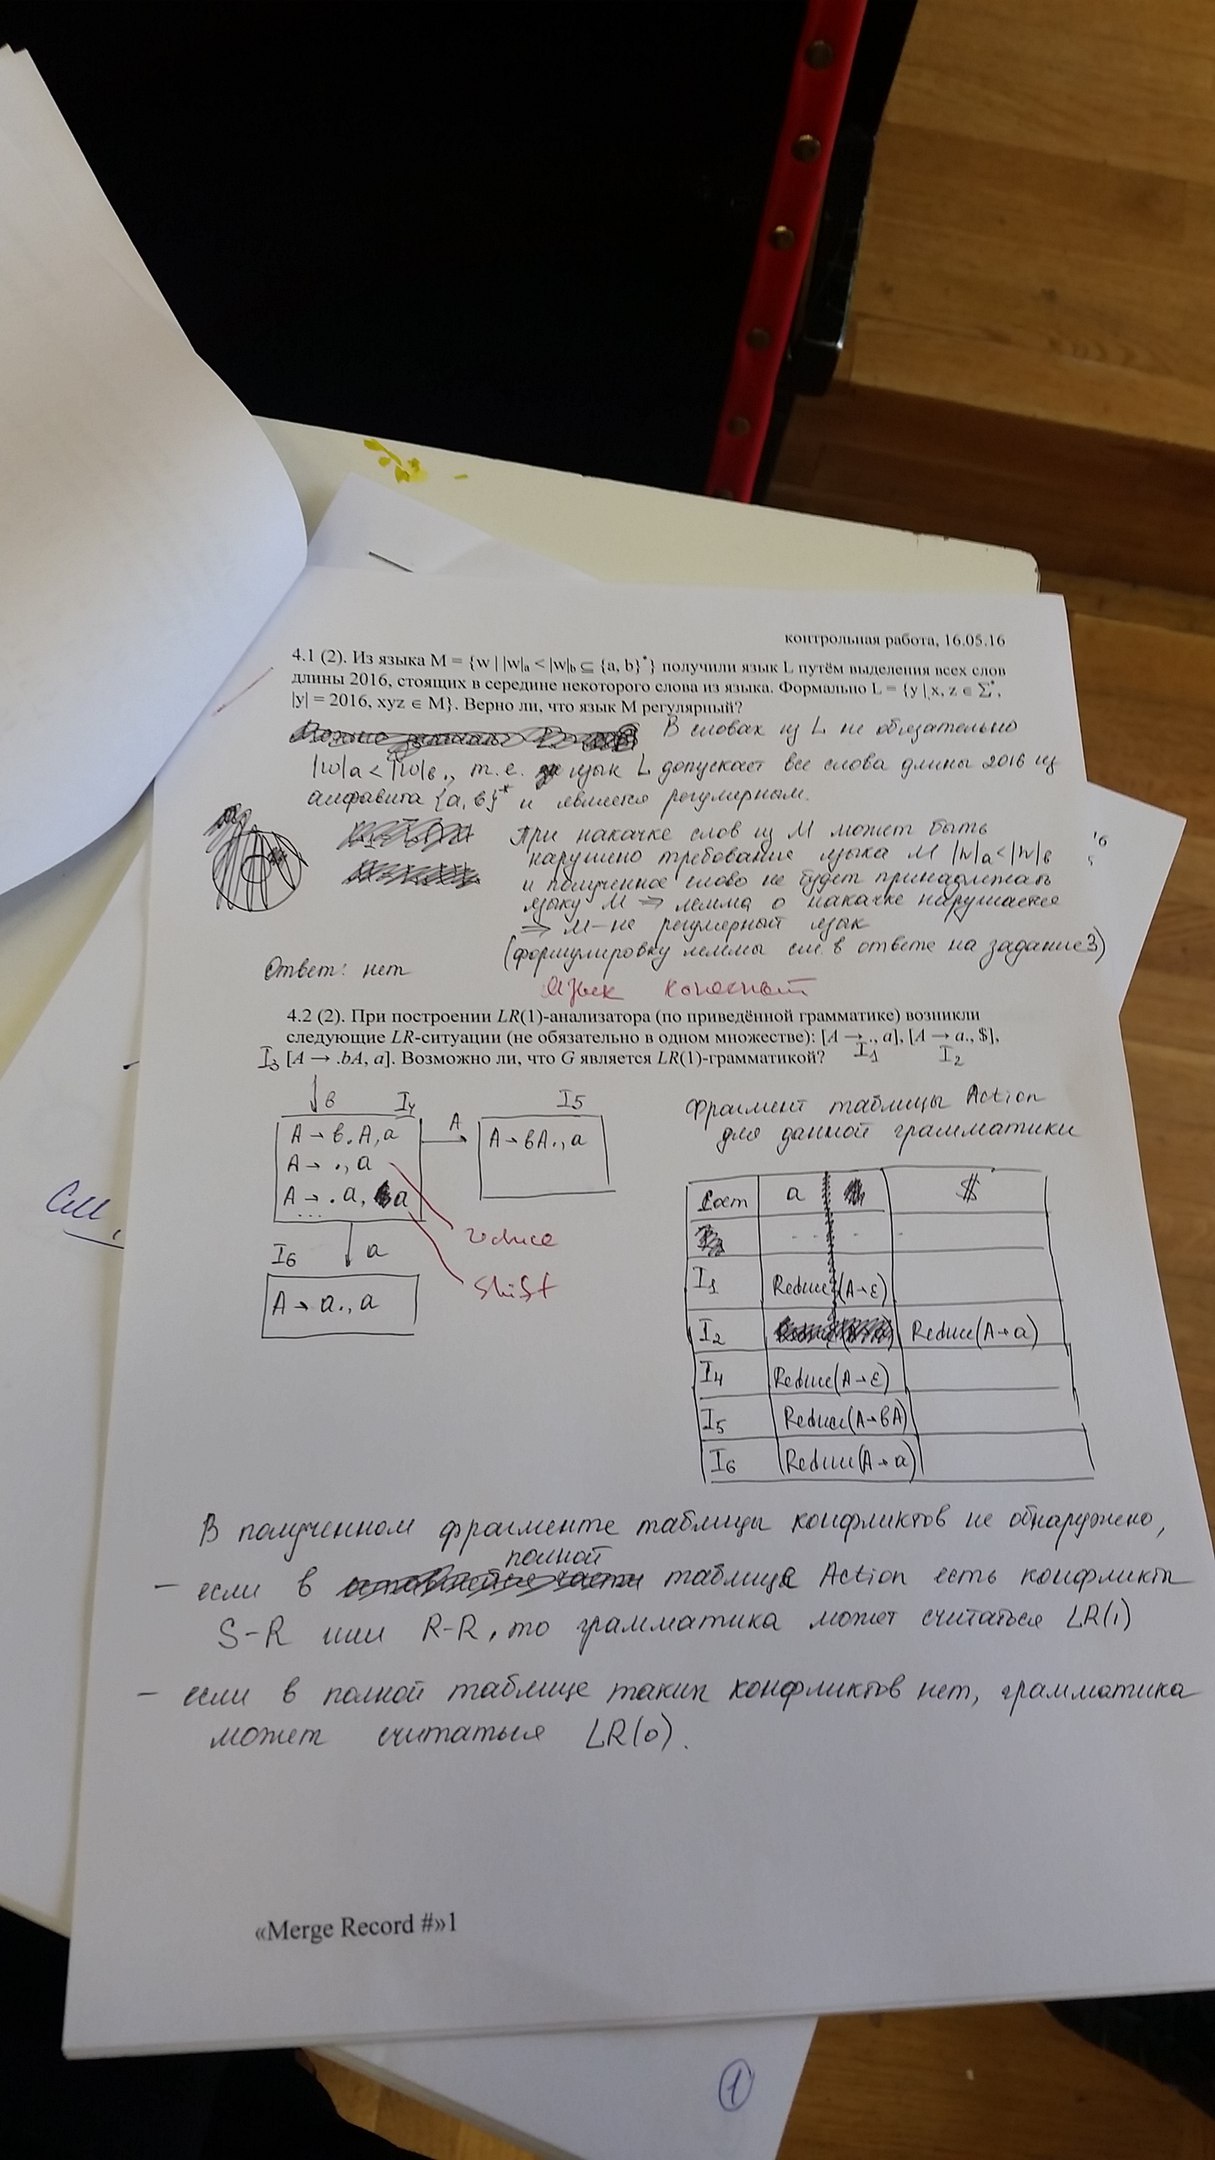 контрольная работа, 16.05.16
4.1 (2). Из языка M = {w | |w|a < |w|b ⊆ {a, b}*} получили язык L путём выделения всех слов
длины 2016, стоящих в середине некоторого слова из языка. Формально L = {y | x, z ∈ Σ*,
|y| = 2016, xyz ∈ M}. Верно ли, что язык M регулярный?
В словах из L не обязательно
|w|a < |w|b, т.е. язык L допускает все слова длины 2016 из
алфавита {a, b}* и является регулярным.
При накачке слов из M может быть
нарушено требование языка M |w|a < |w|b
и полученное слово не будет принадлежать
языку M ⇒ лемма о накачке нарушается
⇒ M - не регулярный язык
(формулировку леммы см. в ответе на задание 3)
Ответ: нет
Язык конечный
4.2 (2). При построении LR(1)-анализатора (по приведённой грамматике) возникли
следующие LR-ситуации (не обязательно в одном множестве): [A → ., a], [A → a., $],
I3 [A → .bA, a]. Возможно ли, что G является LR(1)-грамматикой? I1 I2
b I4 I5
A → b.A, a A A → bA., a
A → ., a
A → .a, a
...
reduce
shift
I6 a
A → a., a
Фрагмент таблицы Action
для данной грамматики
Сост a $
I1 Reduce(A→ε)
I2 Reduce(A→a)
I4 Reduce(A→ε)
I5 Reduce(A→bA)
I6 Reduce(A→a)
В полученном фрагменте таблицы конфликтов не обнаружено,
— если в полной таблице Action есть конфликты
S-R или R-R, то грамматика может считаться LR(1)
— если в полной таблице таких конфликтов нет, грамматика
может считаться LR(0).
«Merge Record #»1
1